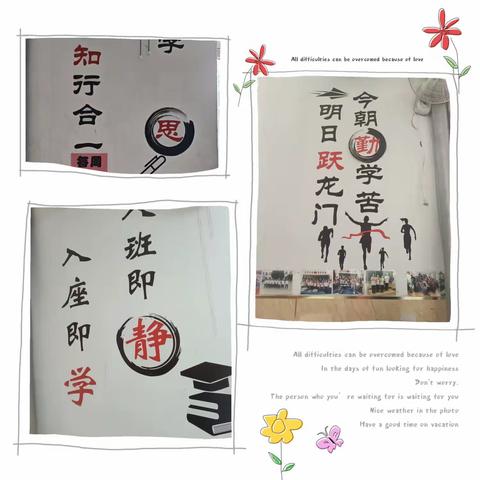 学
知行合一
思
每周
All difficulties can be overcomed because of love
今朝勤学苦
明日跃龙门
入班即静
入座即学
All difficulties can be overcomed because of love
In the days of fun looking for happiness
Don't worry,
The person who you' re waiting for is waiting for you
Nice weather in the photo
Have a good time on vacation